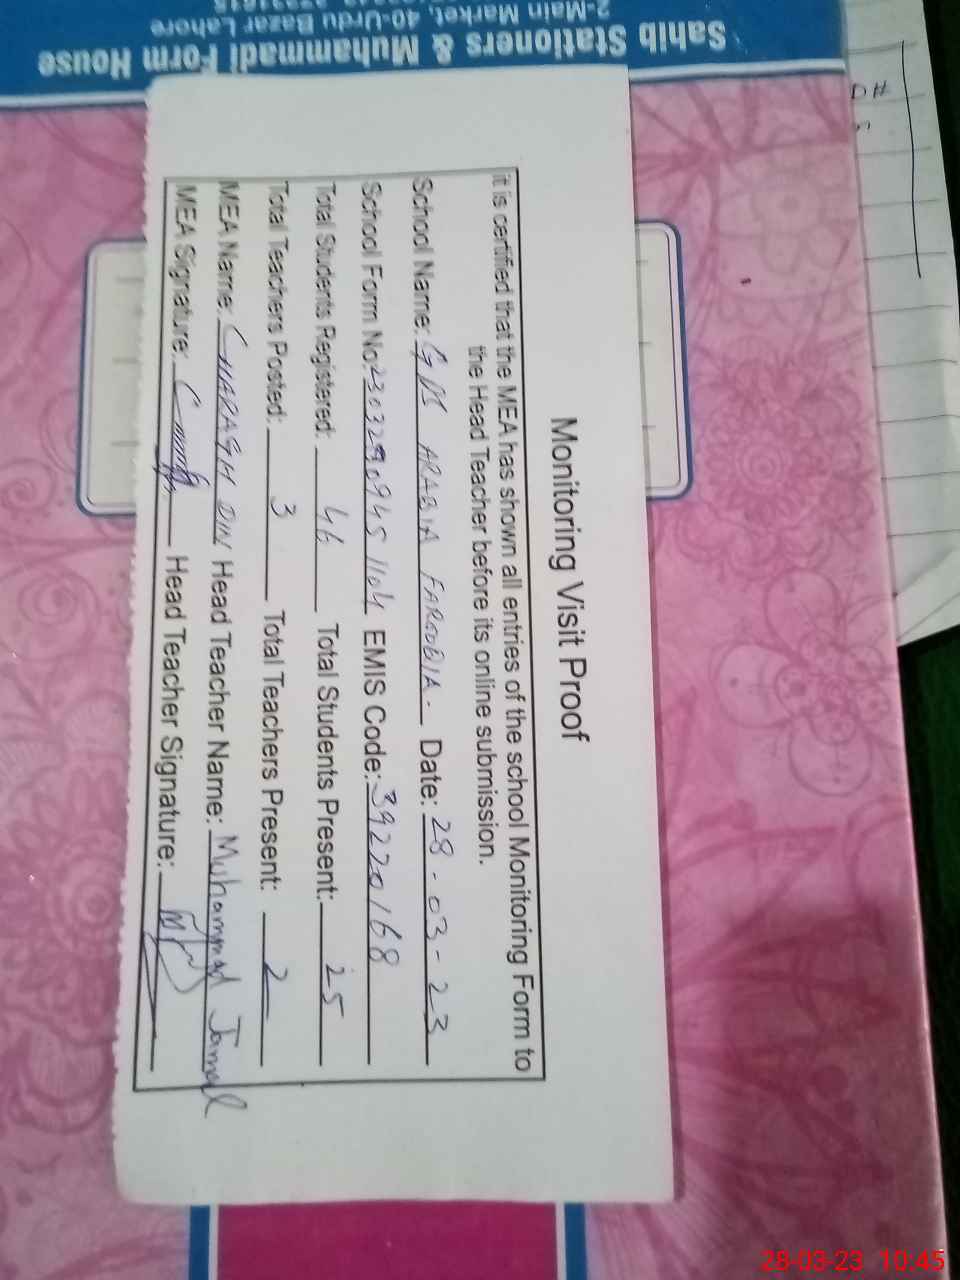 Monitoring Visit Proof
it is certified that the MEA has shown all entries of the school Monitoring Form to
the Head Teacher before its online submission.
School Name: GPS ARABIA FAROOQIA. Date: 28-03-23
School Form No: 23032909451104 EMIS Code: 39220168
Total Students Registered: 46 Total Students Present: 25
Total Teachers Posted: 3 Total Teachers Present: 2
MEA Name: CHARAGH DIN Head Teacher Name: Muhammad Jameel
MEA Signature: Head Teacher Signature:
Sahib Stationers & Muhammadi Form House
2-Main Market, 40-Urdu Bazar Lahore
28-03-23 10:45